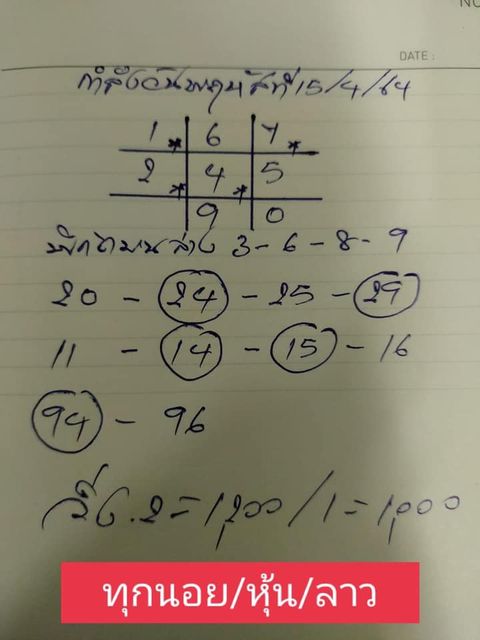 NO
DATE :
กำลังวันพฤหัสที่ 15/4/64
1 * 6 7 *
2 * 4 * 5
9 0
บน ล่าง 3 - 6 - 8 - 9
20 - 24 - 25 - 29
11 - 14 - 15 - 16
94 - 96
วิ่ง.2 = 1,200 / 1 = 1,000
ทุกนอย/หุ้น/ลาว